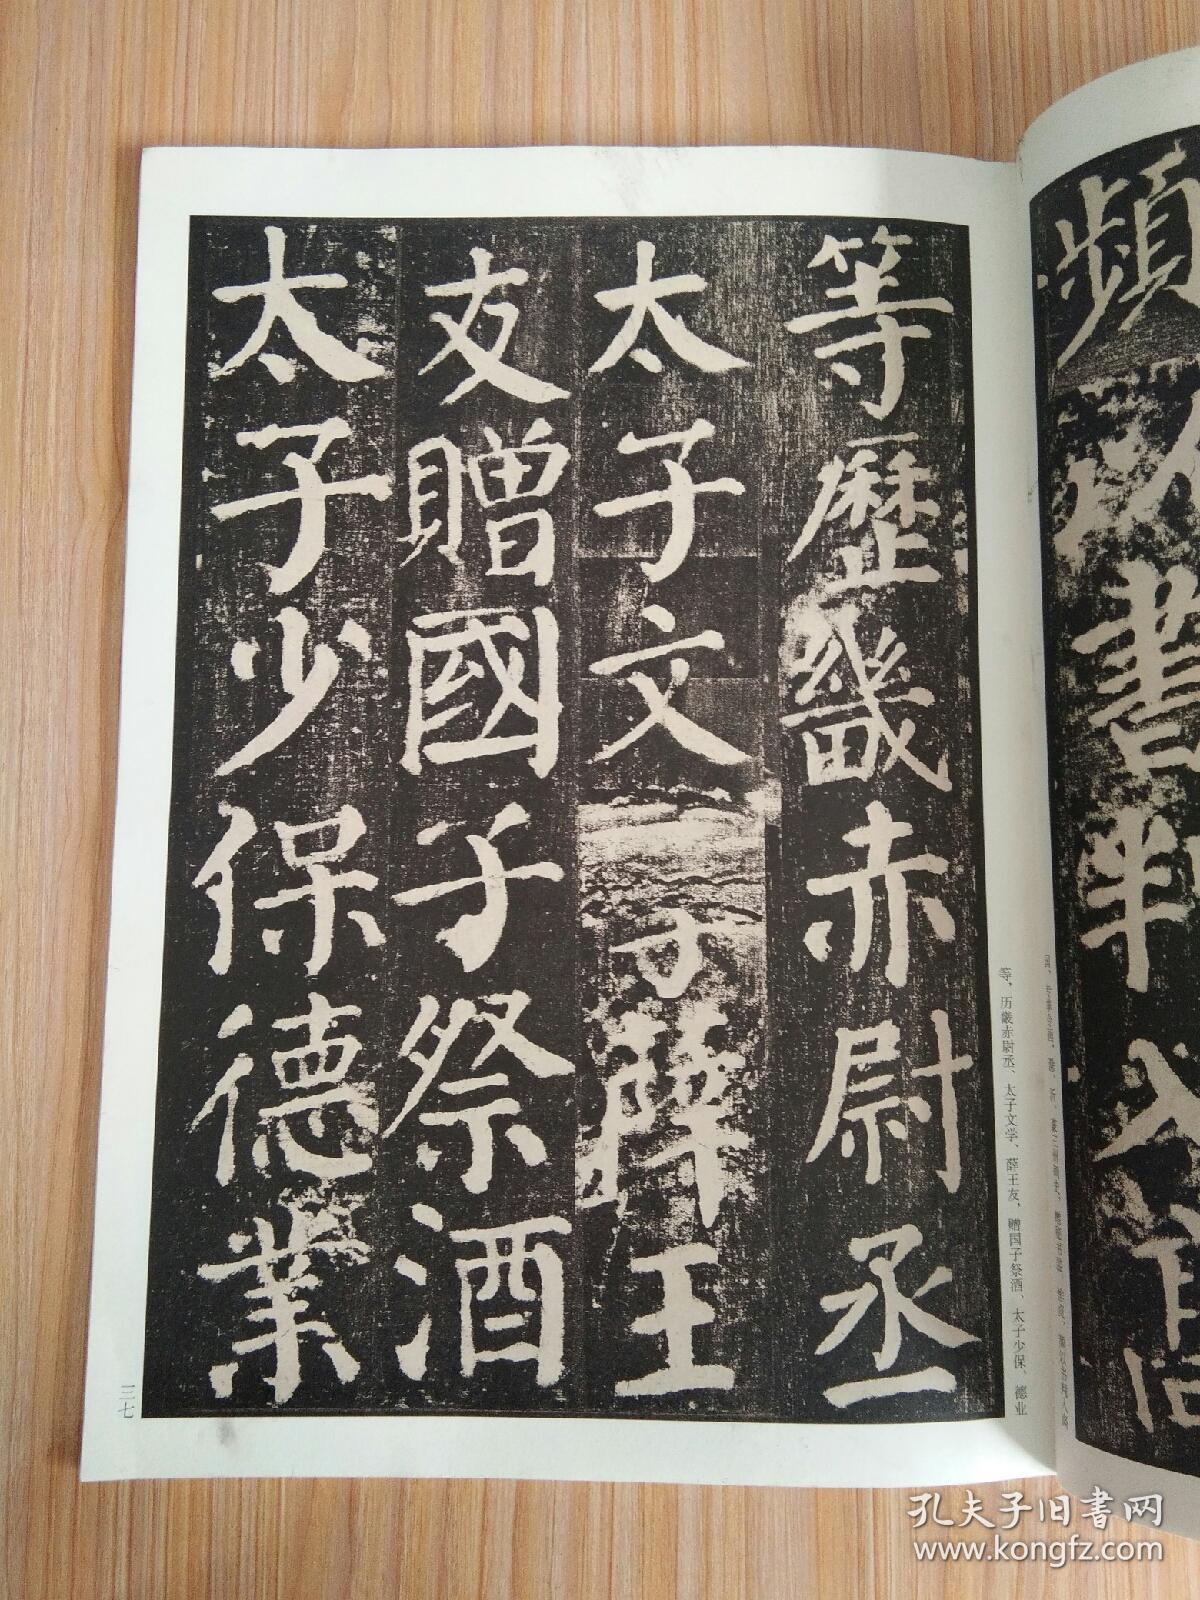 等歷畿赤尉丞
太子文子薛王
友贈國子祭酒
太子少保德業
等，历畿赤尉丞、太子文学、薛王友，赠国子祭酒、太子少保，德业
三七
頻以書判入高
孔夫子旧书网
www.kongfz.com